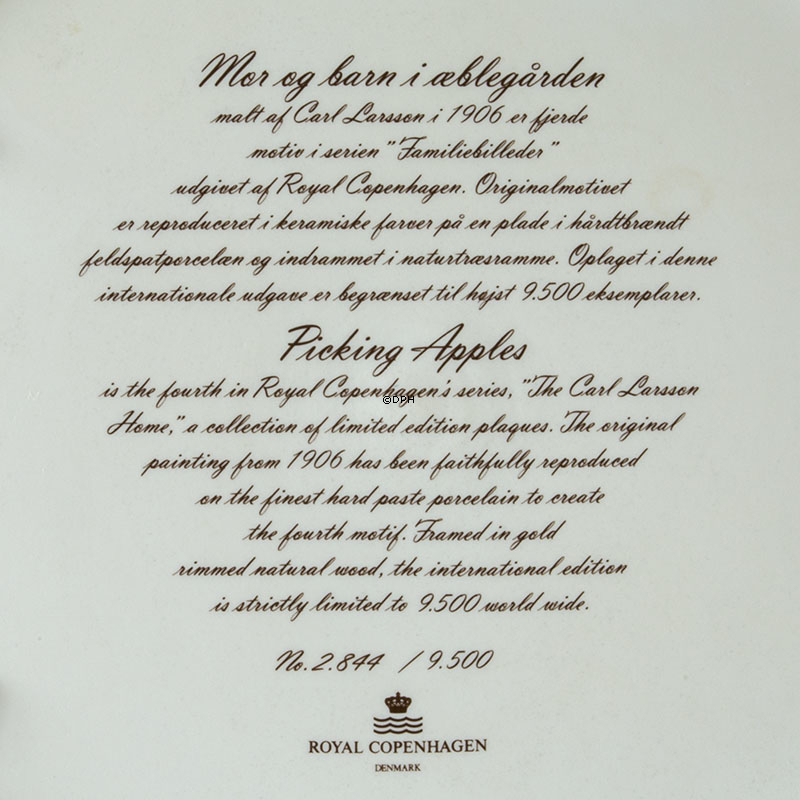 Mor og barn i æblegården
malt af Carl Larsson i 1906 er fjerde
motiv i serien "Familiebilleder"
udgivet af Royal Copenhagen. Originalmotivet
er reproduceret i keramiske farver på en plade i hårdtbrændt
feldspatporcelæn og indrammet i naturtræsramme. Oplaget i denne
internationale udgave er begrænset til højst 9.500 eksemplarer.
Picking Apples
is the fourth in Royal Copenhagen's series, "The Carl Larsson
©DPH
Home," a collection of limited edition plaques. The original
painting from 1906 has been faithfully reproduced
on the finest hard paste porcelain to create
the fourth motif. Framed in gold
rimmed natural wood, the international edition
is strictly limited to 9.500 world wide.
No. 2.844 / 9.500
ROYAL COPENHAGEN
DENMARK